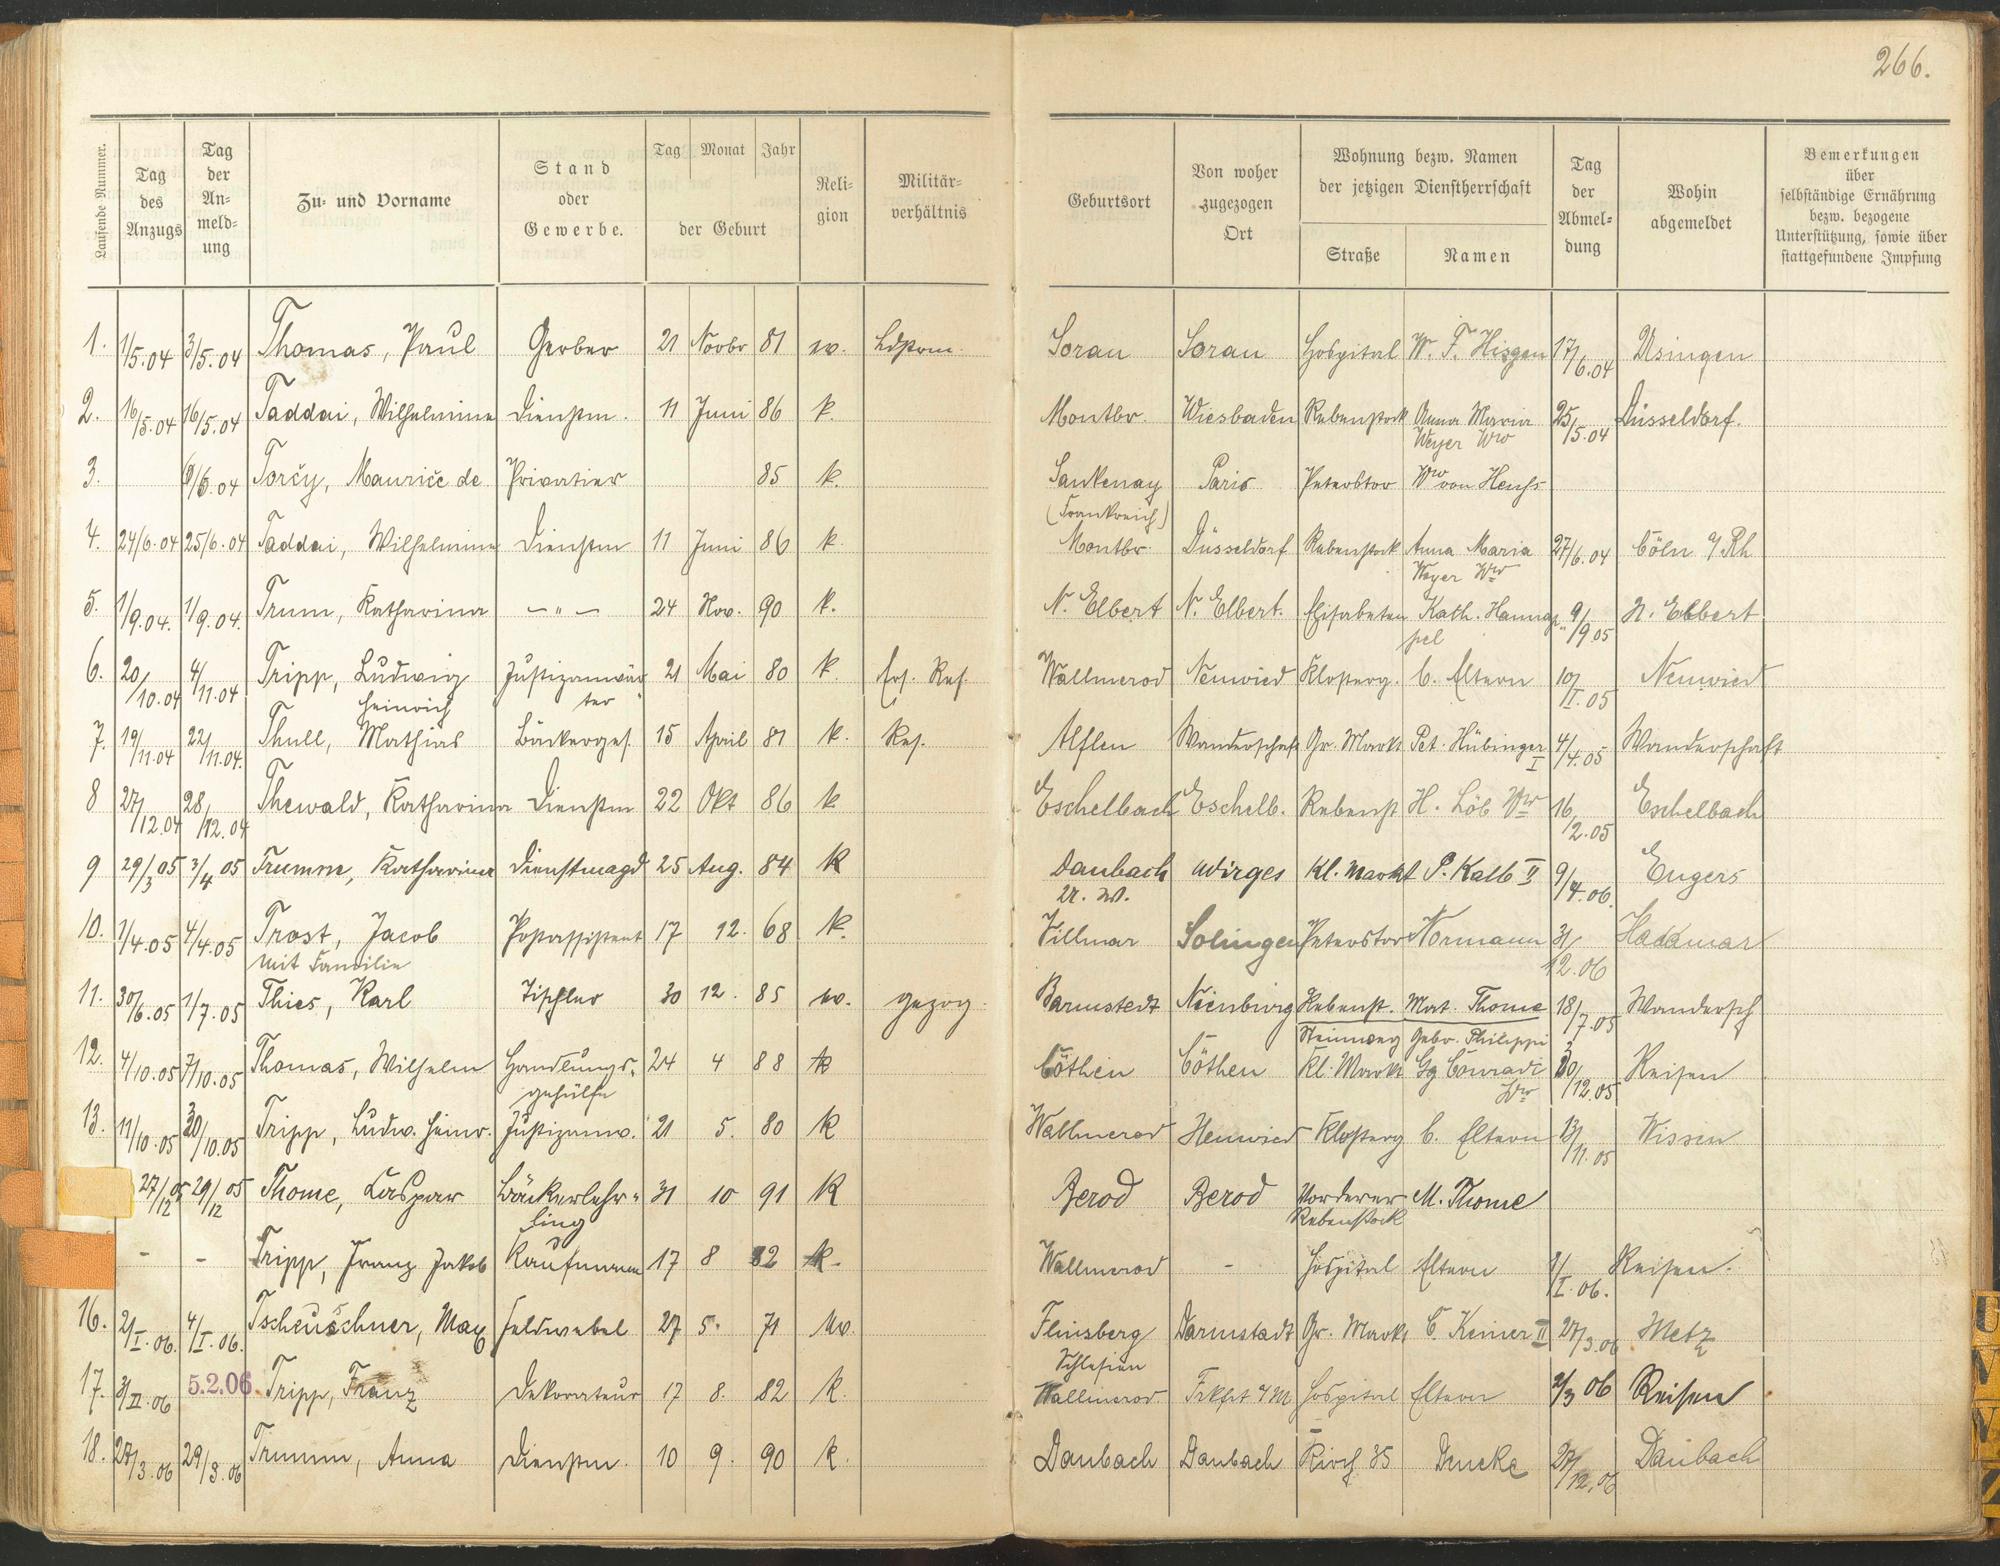 266.
Laufende Nummer. Tag des Anzugs Tag der An- meld- ung Zu- und Vorname Stand oder Gewerbe. Tag Monat Jahr der Geburt Reli- gion Militär- verhältnis Geburtsort Von woher zugezogen Ort Wohnung bezw. Namen der jetzigen Dienstherrschaft Straße Namen Tag der Abmel- dung Wohin abgemeldet Bemerkungen über selbständige Ernährung bezw. bezogene Unterstützung, sowie über stattgefundene Impfung
1. 1/5.04 3/5.04 Thomas, Paul Gerber 21 Novbr 81 ev. Ldstrm. Sorau Sorau Hospital W. F. Hisgen 17/6.04 Usingen
2. 16/5.04 16/5.04 Taddai, Wilhelmine Dienstm. 11 Juni 86 k. Montbr. Wiesbaden Rebenstock Anna Maria 25/5.04 Düsseldorf.
Weyer Ww
3. 6/6.04 Torčy, Mauriče de Privatier 85 k. Sankenay Paris Peterstor Ww von
(Frankreich)
4. 24/6.04 25/6.04 Taddai, Wilhelmine Dienstm 11 Juni 86 k. Montbr. Düsseldorf Rebenstock Anna Maria 27/6.04 Cöln a/Rh
Weyer Ww
5. 1/9.04. 1/9.04. Trum, Katharina — " — 24 Nov. 90 k. N. Elbert N. Elbert. Elisabeten Kath. Hannap- 9/9 05 N. Elbert
pel
6. 20/10.04 4/11.04 Tripp, Ludwig Justizanwär 21 Mai 80 k. Ers. Res. Wallmerod Neuwied Klosterg. b. Eltern 10/II.05 Neuwied
Heinrich ter
7. 19/11.04 22/11.04. Thull, Mathias Bäckerges. 15 April 81 k. Res. Alflen Wanderschaft Gr. Markt Pet. Hübinger I 4/4.05 Wanderschaft
8 27/12.04 28/12.04 Thewald, Katharina Dienstm 22 Okt 86 k Eschelbach Eschelb. Rebenst H. Löb Ww 16/2.05 Eschelbach
9 29/3 05 3/4 05 Trumm, Katharina Dienstmagd 25 Aug. 84 K Daubach Wirges Kl. Markt P. Kalb II 9/4.06. Engers
U. W.
10. 1/4.05 4/4.05 Trost, Jacob Postassistent 17 12. 68 k. Villmar Solingen Peterstor Normann 31/12.06 Hadamar
mit Familie
11. 30/6.05 1/7.05 Thies, Karl Tischler 30 12. 85 ev. gezog. Barmstedt Nienburg Rebenst. Mat. Thome 18/7.05 Wandersch
Steinweg Gebr. Philippi
12. 4/10.05 7/10.05 Thomas, Wilhelm Handlungs- 24 4 88 k Cöthen Cöthen Kl. Markt Gg Conradi 30/12.05 Reisen
gehülfe Ww
13. 11/10.05 30/10.05 Tripp, Ludw. Heinr. Justizanw. 21 5. 80 K Wallmerod Neuwied Klosterg b. Eltern 13/11.05 Wissen
27/12 05 29/12 05 Thome, Caspar Bäckerlehr- 31 10 91 K Berod Berod Vorderer M. Thome
ling Rebenstock
- - Tripp, Franz Jakob Kaufmann 17 8 82 k. Wallmerod - Hospital Eltern 1/I.06. Reisen.
16. 2/I.06. 4/I.06. Tscheuschner, Max Feldwebel 27 5. 71 ev. Flinsberg Darmstadt Gr. Markt C. Keiner II 27/3.06 Metz
Schlesien
17. 3/II.06 5.2.06. Tripp, Franz Dekorateur 17 8. 82 k. Wallmerod Frkfrt a/M Hospital Eltern 2/3 06 Reisen
18. 27/3.06 29/3.06 Trumm, Anna Dienstm. 10 9. 90 k. Daubach Daubach Kirch 35 Dencke 27/12.06 Daubach